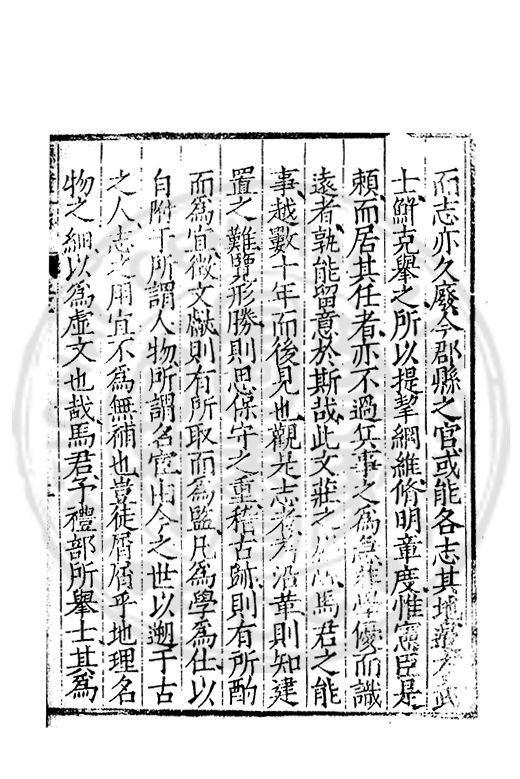 而志亦久廢今郡縣之官或能各志其地邊方武
士鮮克舉之所以提挈綱維脩明章度惟憲臣是
賴而居其任者亦不過兵事之為急非學優而識
遠者孰能留意於斯哉此文莊之馬君之能
事越數十年而後見也觀是志者考沿革則知建
置之難覽形勝則思保守之重稽古跡則有所酌
而為宜徵文獻則有所取而為監凡為學為仕以
自附于所謂人物所謂名宦由今之世以遡于古
之人志之用宜不為無補也豈徒屑屑乎地理名
物之細以為虛文也哉馬君予禮部所舉士其為